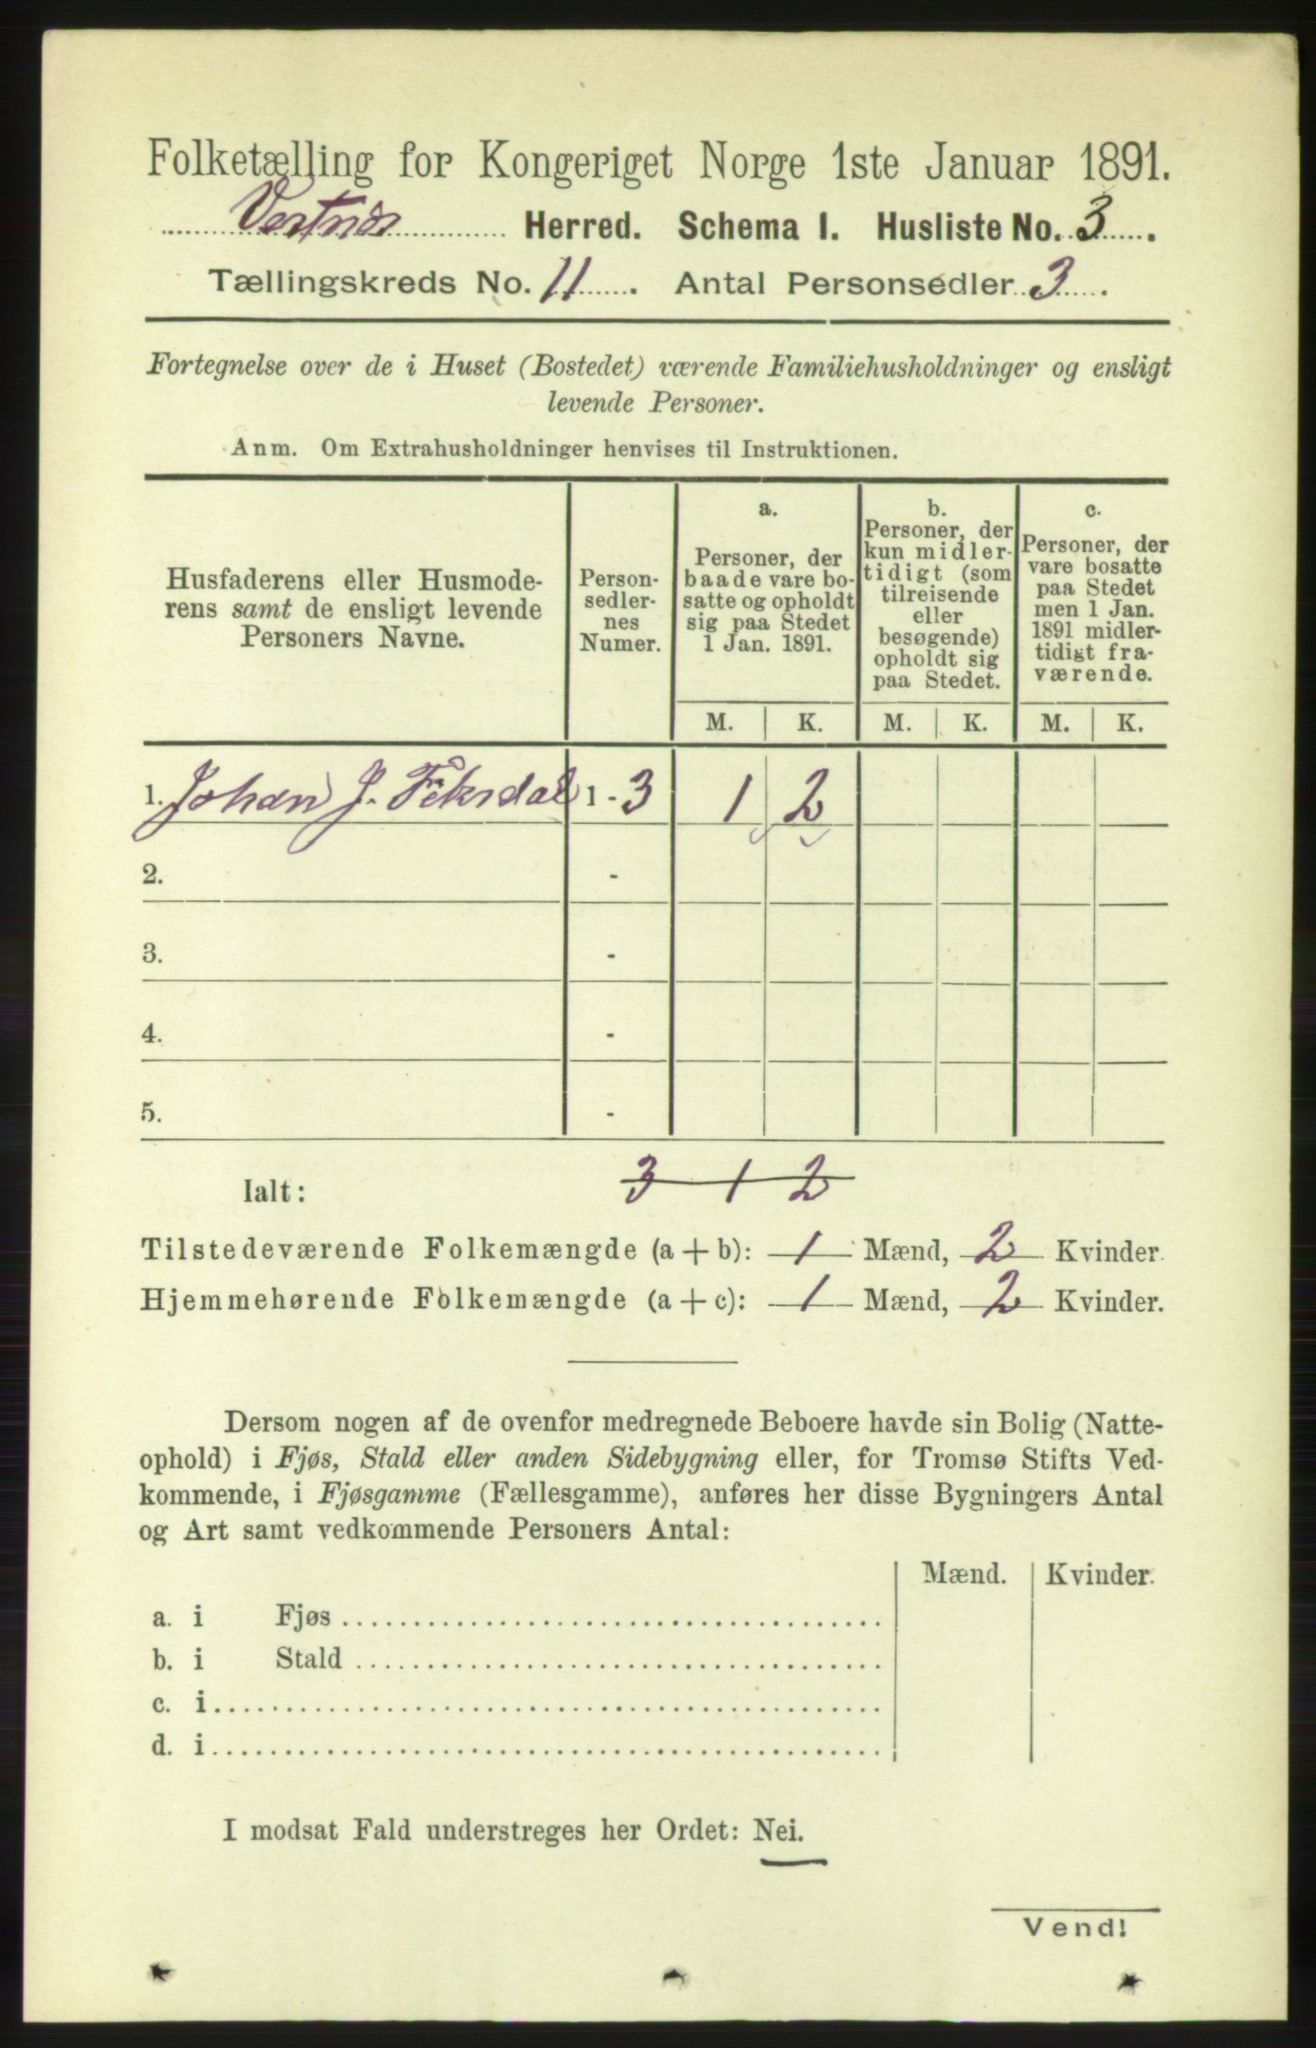 Folketælling for Kongeriget Norge 1ste Januar 1891.
Vestnes Herred. Schema I. Husliste No. 3.
Tællingskreds No. 11. Antal Personsedler 3.
Fortegnelse over de i Huset (Bostedet) værende Familiehusholdninger og ensligt
levende Personer.
Anm. Om Extrahusholdninger henvises til Instruktionen.
Husfaderens eller Husmode-
rens samt de ensligt levende
Personers Navne.
Person-
sedler-
nes
Numer.
a.
Personer, der
baade vare bo-
satte og opholdt
sig paa Stedet
1 Jan. 1891.
b.
Personer, der
kun midler-
tidigt (som
tilreisende
eller
besøgende)
opholdt sig
paa Stedet.
c.
Personer, der
vare bosatte
paa Stedet
men 1 Jan.
1891 midler-
tidigt fra-
værende.
M. K. M. K. M. K.
1. Johan J. Fiksdal 1 - 3 1 2
2. -
3. -
4. -
5. -
Ialt: 3 1 2
Tilstedeværende Folkemængde (a + b): 1 Mænd, 2 Kvinder.
Hjemmehørende Folkemængde (a + c): 1 Mænd, 2 Kvinder.
Dersom nogen af de ovenfor medregnede Beboere havde sin Bolig (Natte-
ophold) i Fjøs, Stald eller anden Sidebygning eller, for Tromsø Stifts Ved-
kommende, i Fjøsgamme (Fællesgamme), anføres her disse Bygningers Antal
og Art samt vedkommende Personers Antal:
Mænd. Kvinder.
a. i Fjøs
b. i Stald
c. i
d. i
I modsat Fald understreges her Ordet: Nei.
Vend!